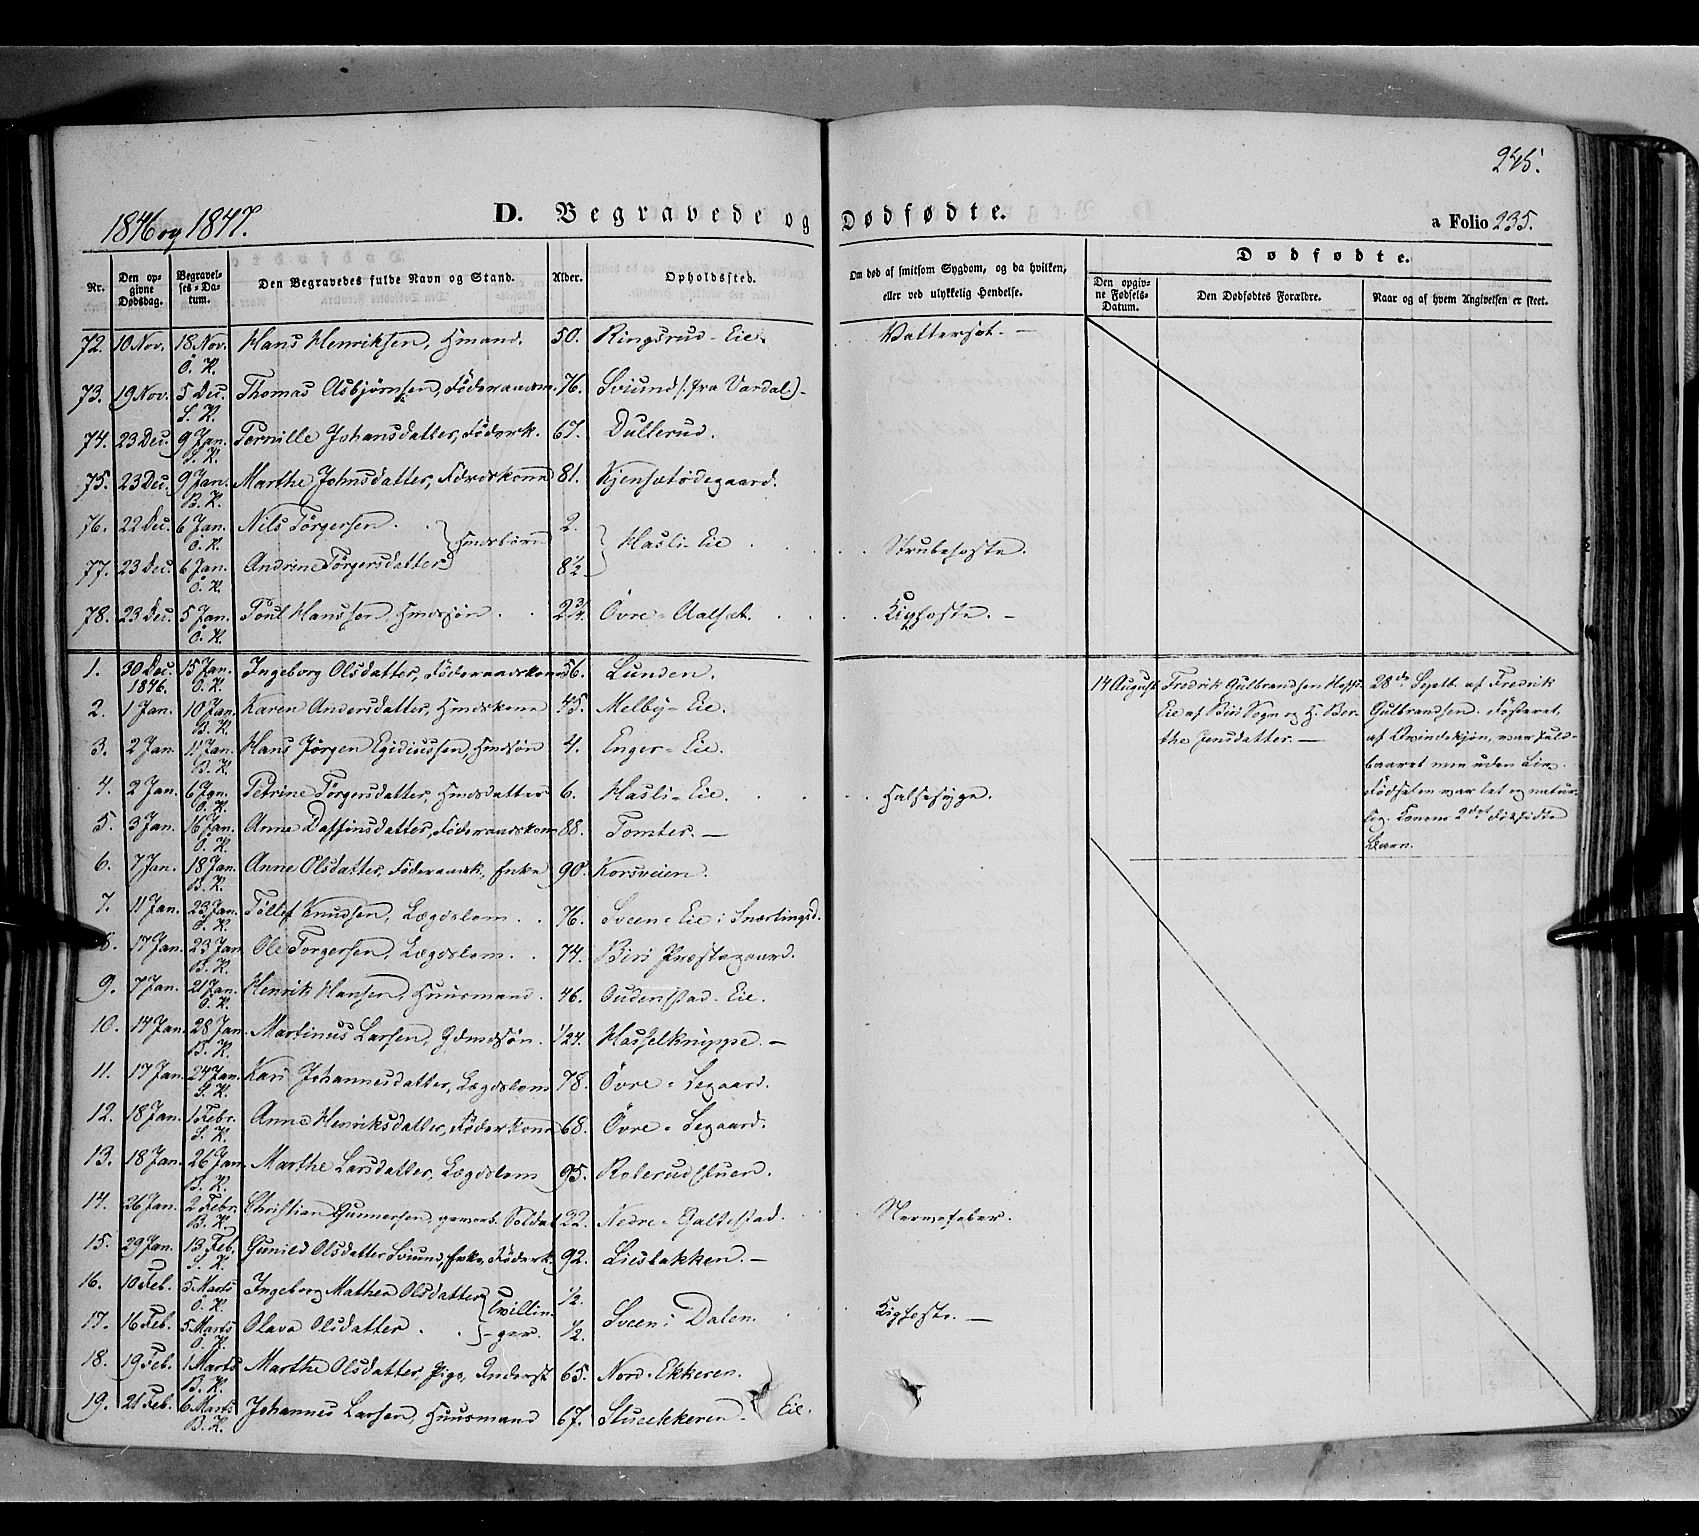 245.
1846 og 1847.
D. Begravede og Dødfødte.
a Folio 235.
Nr.
Den opgivne Dødsdag.
Begravelses-Datum.
Den Begravedes fulde Navn og Stand.
Alder.
Opholdssted.
Om død af smitsom Sygdom, og da hvilken, eller ved ulykkelig Hendelse.
Dødfødte.
Den opgivne Fødsels-Datum.
Den Dødfødtes Forældre.
Naar og af hvem Angivelsen er skeet.
72. 10 Nov. 18 Nov. Ö. K. Hans Henriksen, Hmand. 50. Ringsrud-Eie. Vattersot. —
73. 19 Nov. 5 Dec. S. K. Thomas Asbjørnsen, Föderaadsm. 76. Sviund (fra Vardal) -
74. 23 Dec. 9 Jan. S. K. Pernille Johansdatter, Föderk. 67. Dullerud.
75. 23 Dec. 9 Jan. B. K. Marthe Johnsdatter, 81. Kjensetödegaard.
76. 22 Dec. 6 Jan. Ö. K. Nils Törgersen. Hmdsbörn 2. Hasli-Eie Strubehoste.
77. 23 Dec. 6 Jan. Ö. K. Andrine Törgersdatter 8½
78. 23 Dec. 5 Jan. Ö. K. Poul Hanssen, Hmdssön. 2¾ Övre-Aalset. Kighoste. —
1. 30 Dec. 1846. 15 Jan. Ö. K. Ingeborg Olsdatter, Föderaadskone 56. Lunden.
2. 1 Jan. 10 Jan. B. K. Karen Andersdatter, Hmdskone 45. Melby-Eie.
3. 2 Jan. 11 Jan. B. K. Hans Jörgen Egidiussen, Hmdssön 4. Enger-Eie.
4. 2 Jan. 6 Jan. Ö. K. Petrine Törgersdatter, Hmdsdatter 6. Hasli-Eie. Halsesyge.
5. 3 Jan. 16 Jan. Ö. K. Anne Daffinsdatter, Föderaadskone 88. Tomter. —
6. 7 Jan. 18 Jan. B. K. Anne Olsdatter, Föderaadsk., Enke 90. Korsveien.
7. 11 Jan. 23 Jan. Ö. K. Töllef Knudsen, Lægdslem. 76. Sveen-Eie i Snertingsd.
8. 17 Jan. 23 Jan. B. K. Ole Torgersen, Lægdslem. 74. Biri Præstegaard.
9. 7 Jan. 21 Jan. Ö. K. Henrik Hansen, Huusmand. 46. Oudenstad-Eie.
10. 14 Jan. 28 Jan. B. K. Martinus Larsen, Gdmdssön. 1/24. Hasselknippe. —
11. 17 Jan. 24 Jan. S. K. Kari Johannesdatter, Lægdslem 78. Övre-Segaard.
12. 18 Jan. 1 Febr. S. K. Anne Henriksdatter, Föderkone 68. Övre-Segaard.
13. 18 Jan. 26 Jan. B. K. Marthe Larsdatter, Lægdslem 95. Rolerudstuen.
14. 26 Jan. 2 Febr. B. K. Christian Gunnersen, gevorb. Soldat 22. Nedre-Galtestad. Nervefeber.
15. 29 Jan. 13 Feb. S. K. Gunild Olsdatter Sviund, Enke, Föderk. 92. Liesbakken. —
16. 10 Feb. 5 Marts Ö. K. Ingeborg Mathea Olsdatter Tvillin- ½. Sveen i Dalen. Kighoste. —
17. 16 Feb. 5 Marts Ö. K. Olava Olsdatter. -ger. ½.
18. 19 Feb. 1 Marts B. K. Marthe Olsdatter, Pige, Inderst 65. Nord-Ekkeren.
19. 21 Feb. 6 Marts B. K. Johannes Larsen, Huusmand 67. Stueekkeren. Eie.
14 August
Fredrik Gulbrandsen
Eie af Biri Sogn og H. Ber-
the Jensdatter. —
28de Septb. af Fredrik
Gulbrandsen. Fosteret,
af Qvindekjön, var fuld-
baaret men uden Liv.
Födselen var let og natur-
lig. Konens 2det dödfödte
Barn.